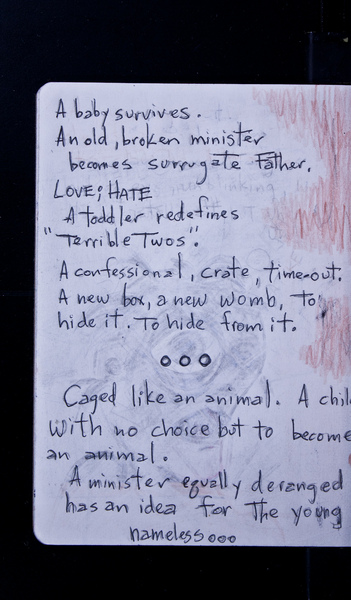 A baby survives.
An old, broken minister
becomes surrugate Father.
LOVE; HATE
A toddler redefines
"Terrible Twos".
A confessional, crate, time-out.
A new box, a new womb, to
hide it. To hide from it.
ooo
Caged like an animal. A chil
with no choice but to become
an animal.
A minister equally deranged
has an idea for the young
nameless...